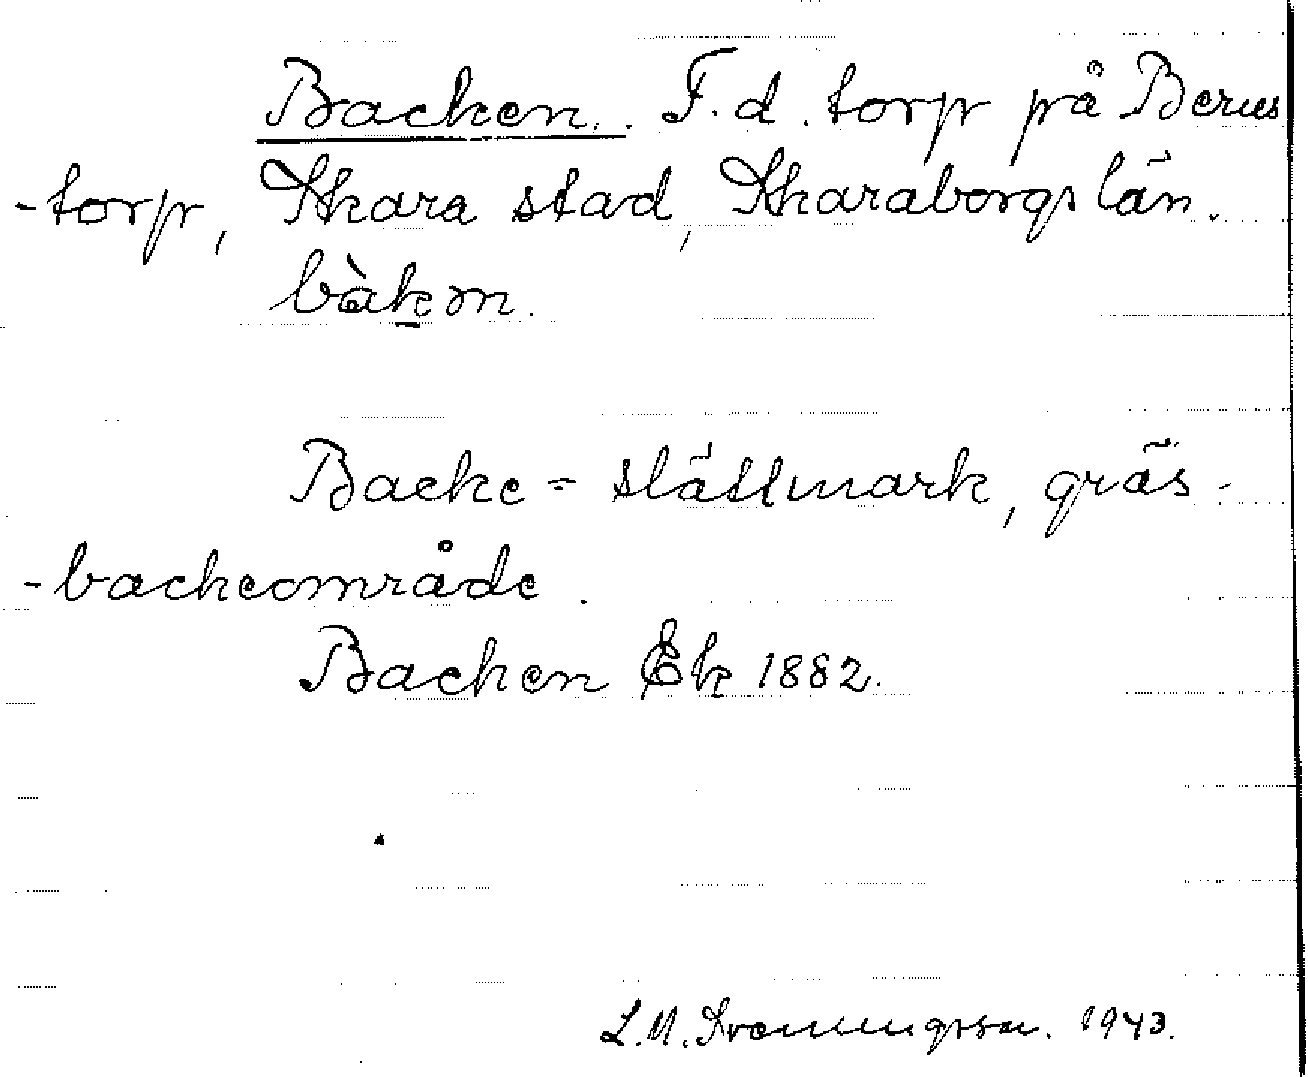 Backen. F.d. torp på Berus
-torp, Skara stad, Skaraborgs län.
bàkm.
Backe = slättmark, gräs-
-backeområde.
Backen Ek 1882.
L.M. Svenungsson. 1943.